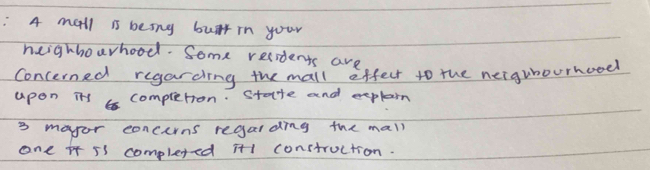 : A mall is being built in your
neighbourhood. Some residents are
concerned regarding the mall effect to the neighbourhood
upon its completion. State and explain
3 major concerns regarding the mall
one it is completed its construction.